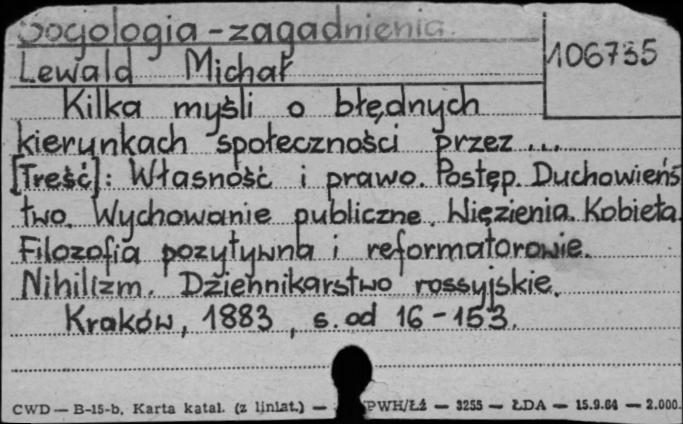 Socjologia - zagadnienia.
106735
Lewald Michał
Kilka myśli o błędnych
kierunkach społeczności przez ...
[Treść]: Własność i prawo. Postęp. Duchowieńs
two. Wychowanie publiczne. Więzienia. Kobieta.
Filozofia pozytywna i reformatorowie.
Nihilizm. Dziennikarstwo rossyjskie.
Kraków, 1883, s. od 16-153.
CWD — B-15-b, Karta katal. (z liniat.) — PWH/Łź — 3255 — ŁDA — 15.9.64 — 2.000.